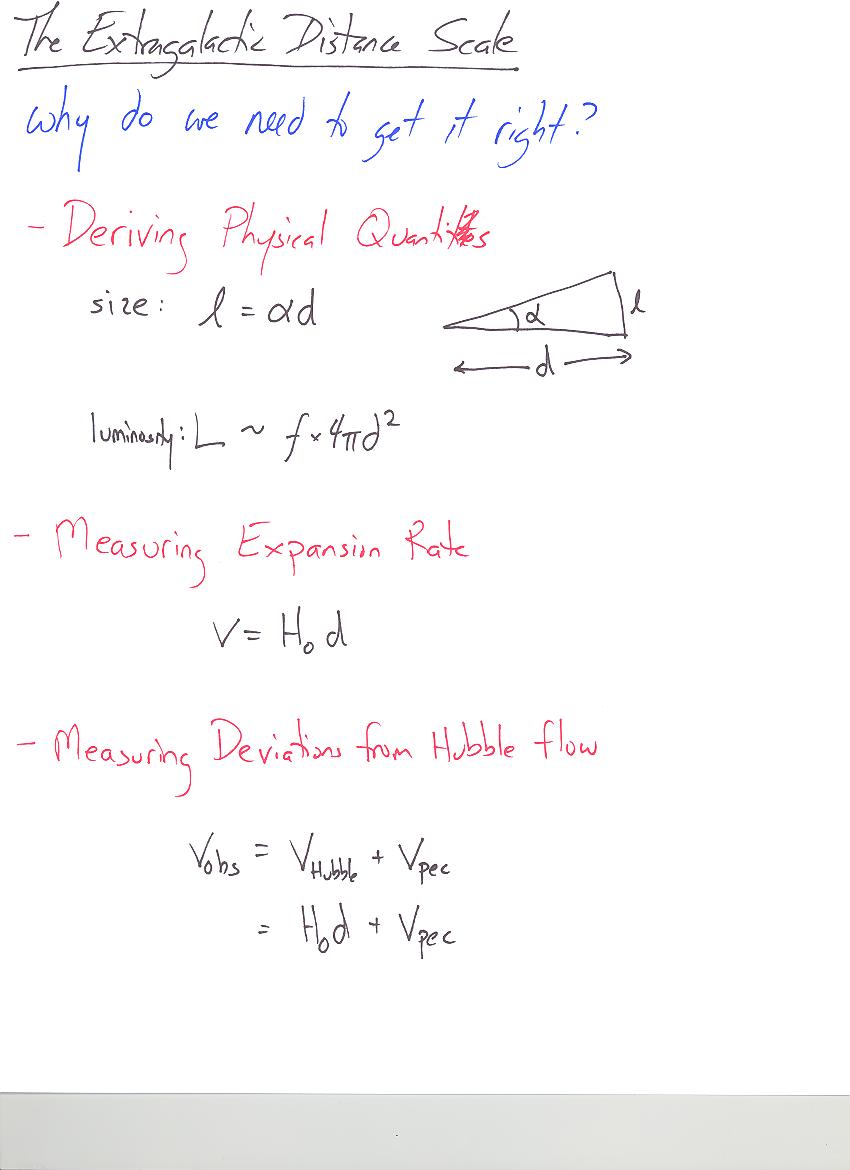 The Extragalactic Distance Scale
Why do we need to get it right?
- Deriving Physical Quantities
size: l = αd
α
l
d
luminosity: L ~ f × 4πd²
- Measuring Expansion Rate
V = H₀ d
- Measuring Deviations from Hubble flow
V_obs = V_Hubble + V_pec
= H₀d + V_pec